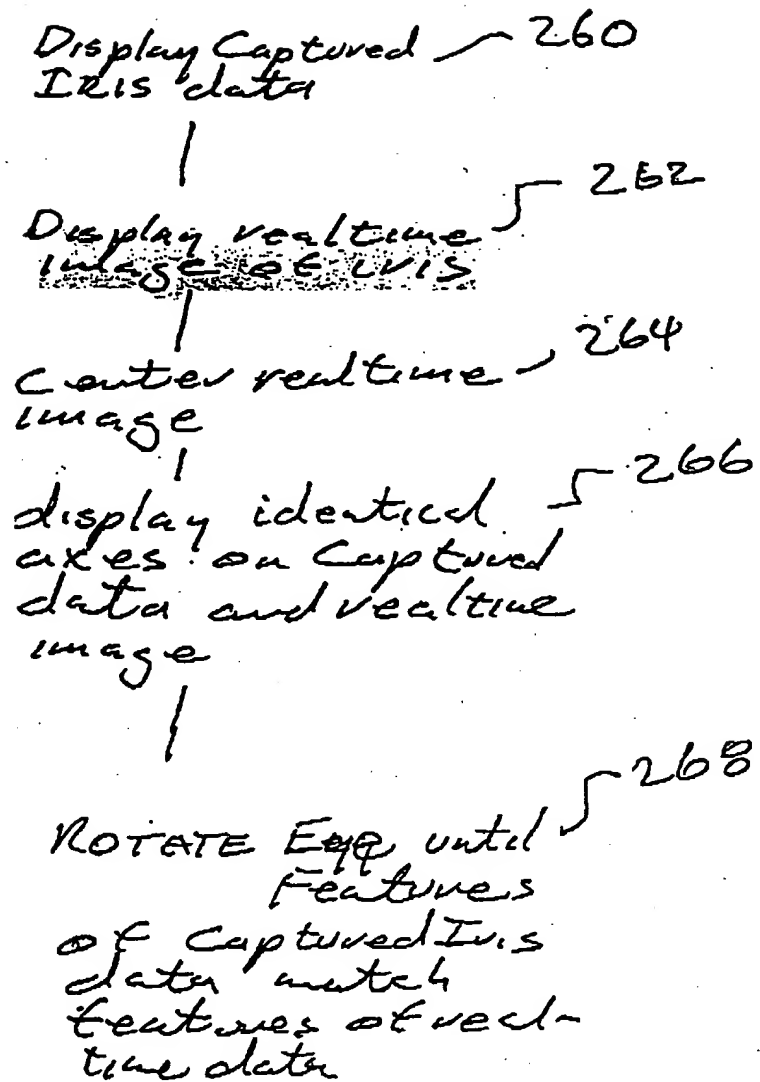 Display Captured 260
IRIS data
Display realtime 262
image of iris
Center realtime 264
image
display identical 266
axes on Captured
data and realtime
image
ROTATE Eye until 268
Features
of Captured Iris
data match
features of real-
time data